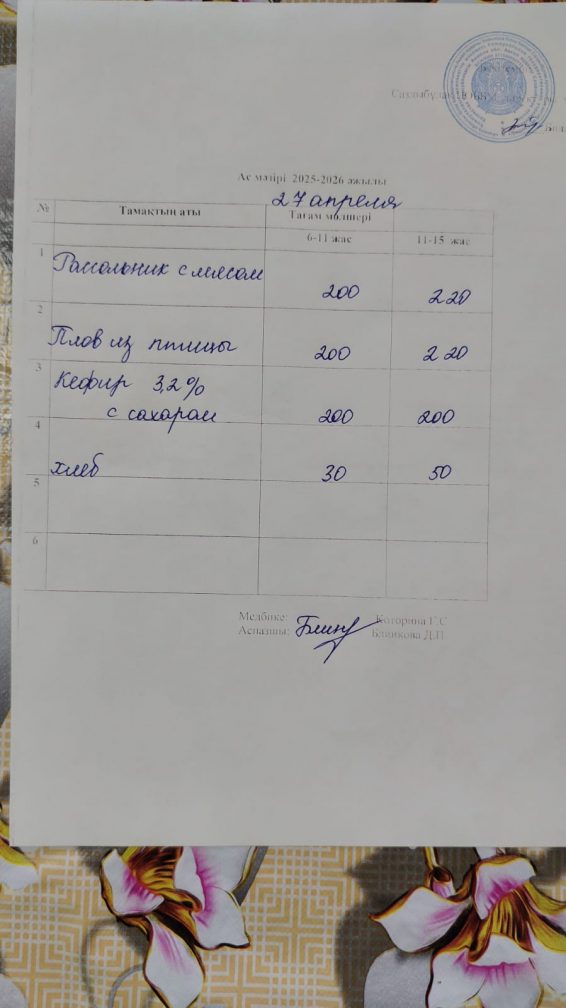 Ас мәзірі 2025-2026 ажылы
27 апреля
№ Тамақтың аты Тағам мөлшері
6-11 жас 11-15 жас
1 Рассольник с мясом 200 220
2 Плов из птицы 200 220
3 Кефир 3,2%
с сахаром 200 200
4 хлеб 30 50
5
6
Медбике: Которина Г.С
Аспазшы: Блинкова Д.П